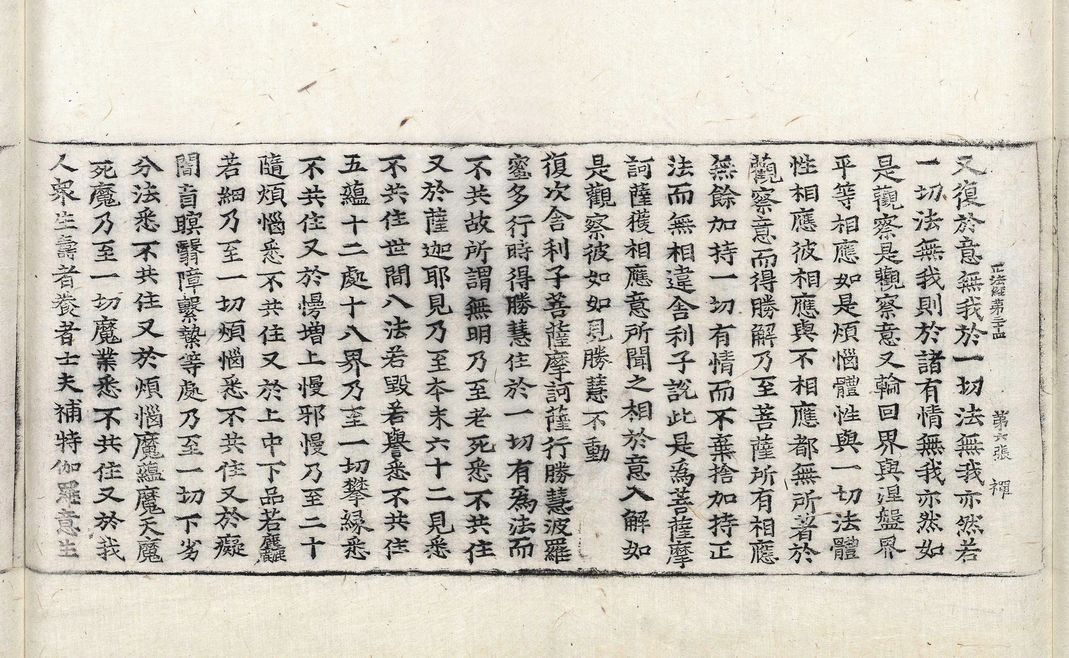 正法經第三十四　第六張　禪
又復於意無我於一切法無我亦然若
一切法無我則於諸有情無我亦然如
是觀察是觀察意又輪回界與涅盤界
平等相應如是煩惱體性與一切法體
性相應彼相應與不相應都無所著於
觀察意而得勝解乃至菩薩所有相應
無餘加持一切有情而不棄捨加持正
法而無相違舍利子說此是為菩薩摩
訶薩獲相應意所聞之相於意入解如
是觀察彼如如見勝慧不動
復次舍利子菩薩摩訶薩行勝慧波羅
蜜多行時得勝慧住於一切有為法而
不共故所謂無明乃至老死悉不共住
又於薩迦耶見乃至本末六十二見悉
不共住世間八法若毀若譽悉不共住
五蘊十二處十八界乃至一切攀緣悉
不共住又於慢增上慢邪慢乃至二十
隨煩惱悉不共住又於上中下品若麤
若細乃至一切煩惱悉不共住又於癡
闇盲瞑翳障繫縶等處乃至一切下劣
分法悉不共住又於煩惱魔蘊魔天魔
死魔乃至一切魔業悉不共住又於我
人眾生壽者養者士夫補特伽羅意生